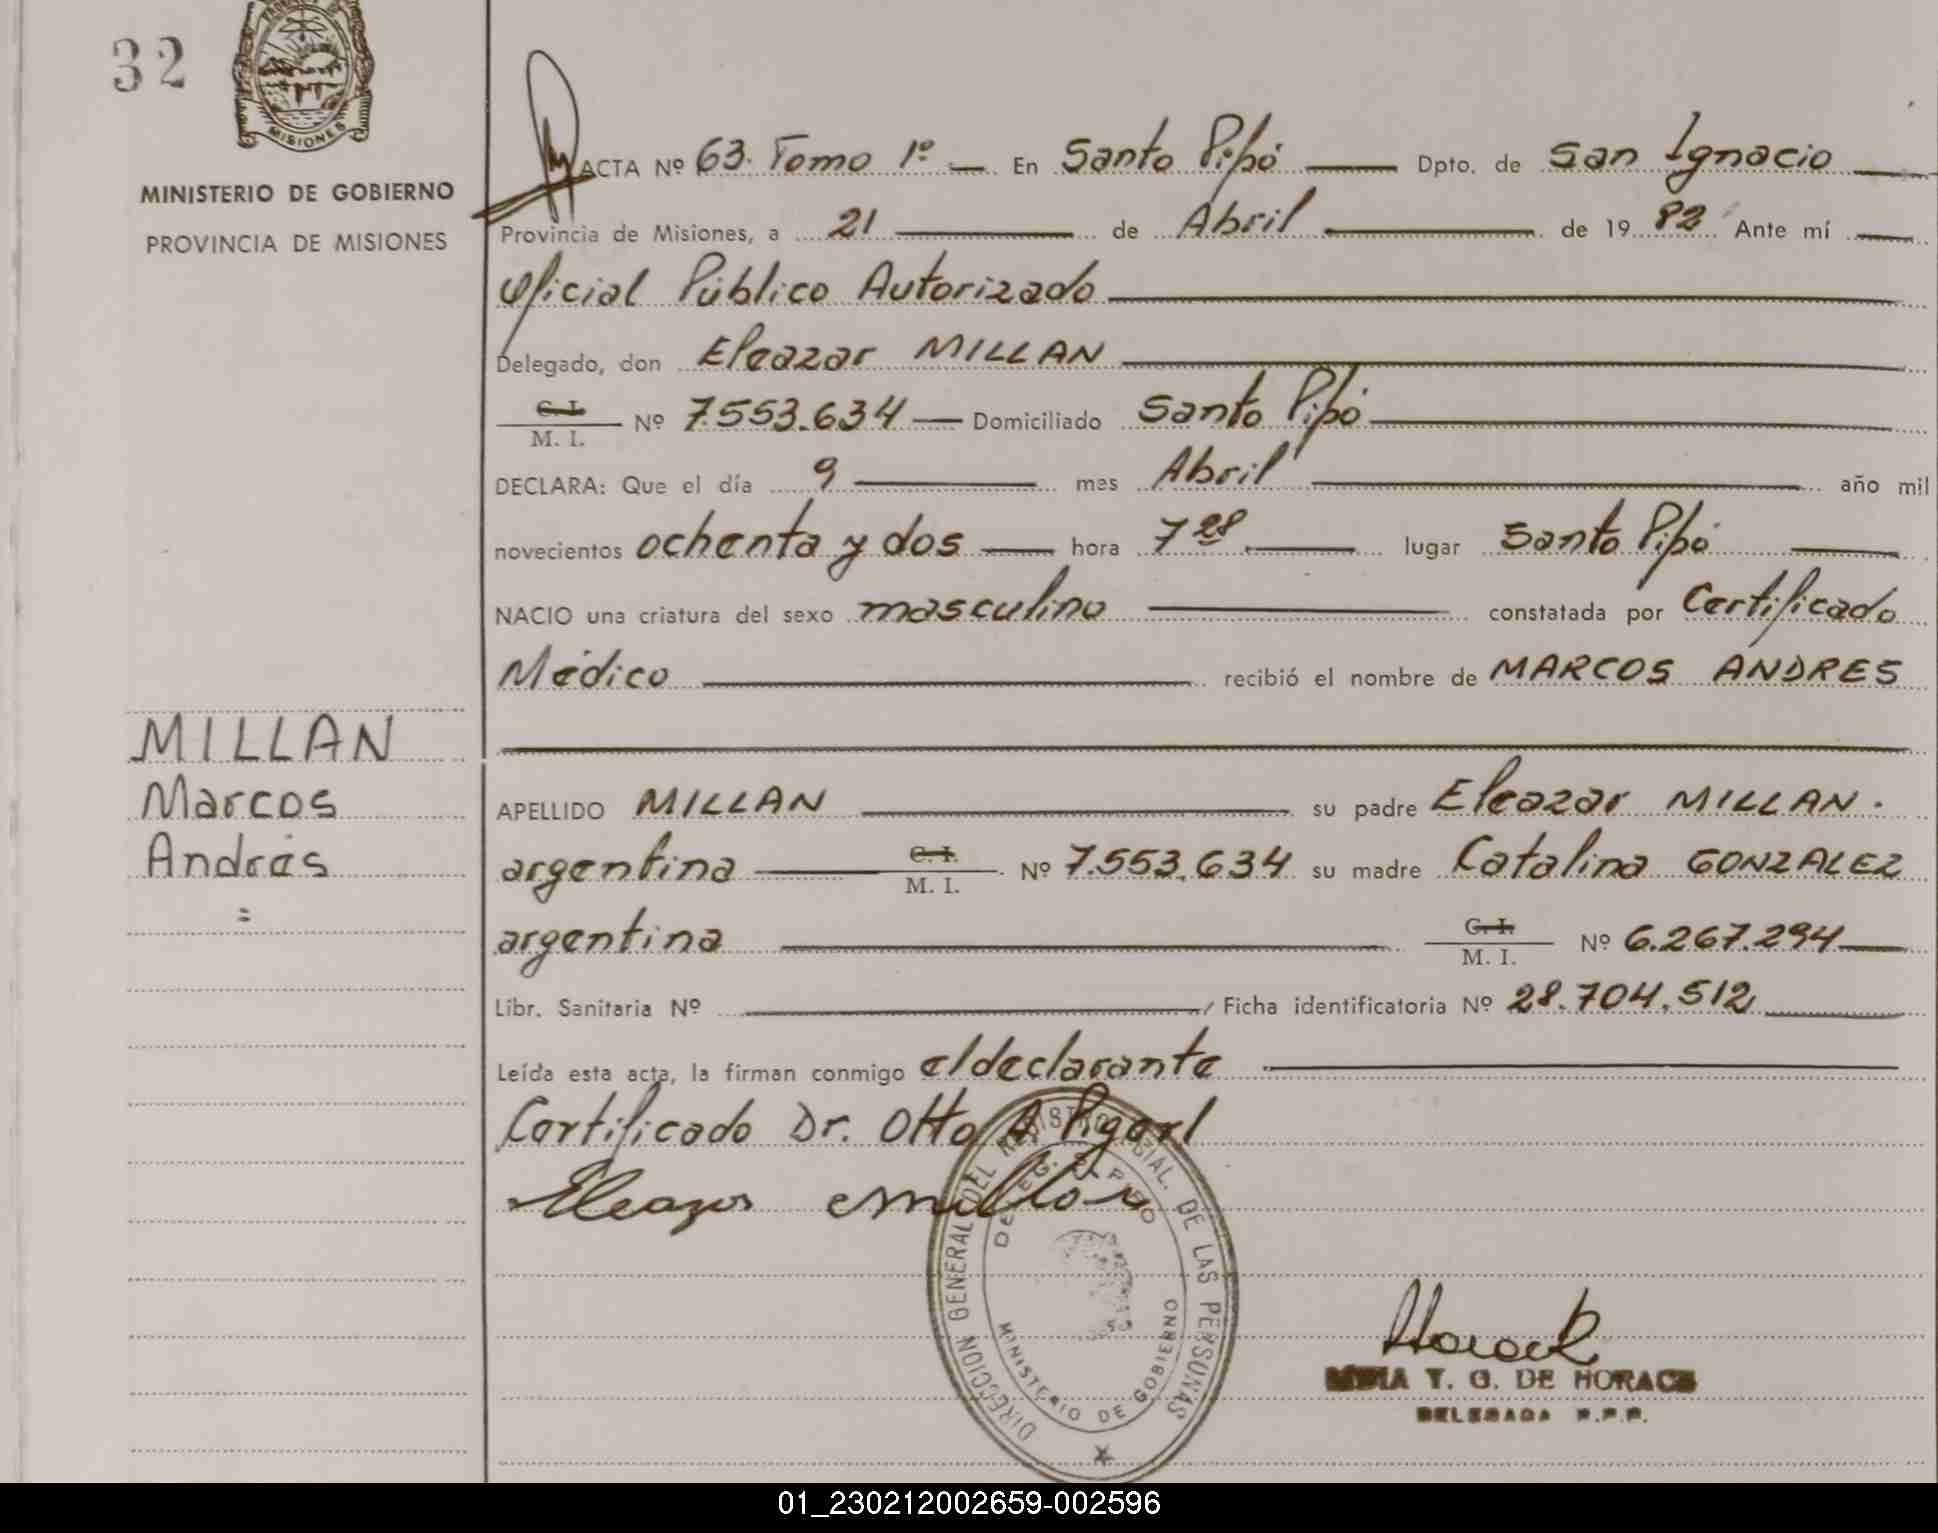 32
MISIONES
MINISTERIO DE GOBIERNO
PROVINCIA DE MISIONES
MILLAN
Marcos
Andrés
=
ACTA Nº 63. Tomo 1º — En Santo Pipó — Dpto. de San Ignacio —
Provincia de Misiones, a 21 — de Abril — de 19 82 Ante mí —
Oficial Público Autorizado —
Delegado, don Eleazar MILLAN —
C. I. / M. I. Nº 7.553.634 — Domiciliado Santo Pipó —
DECLARA: Que el día 9 — mes Abril — año mil
novecientos ochenta y dos — hora 7 28 — lugar Santo Pipó —
NACIO una criatura del sexo masculino — constatada por Certificado
Médico — recibió el nombre de MARCOS ANDRES
APELLIDO MILLAN — su padre Eleazar MILLAN.
argentina — C. I. / M. I. Nº 7.553.634 su madre Catalina GONZALEZ
argentina — C. I. / M. I. Nº 6.267.294 —
Libr. Sanitaria Nº — / Ficha identificatoria Nº 28.704.512 —
Leída esta acta, la firman conmigo el declarante —
Certificado Dr. Otto A
Eleazar Millan
DIRECCION GENERAL DEL DE LAS PERSONAS
DELEG. S. PIPO
MINISTERIO DE GOBIERNO
T. G. DE HORACK
DELEGADA R.P.P.
01_230212002659-002596